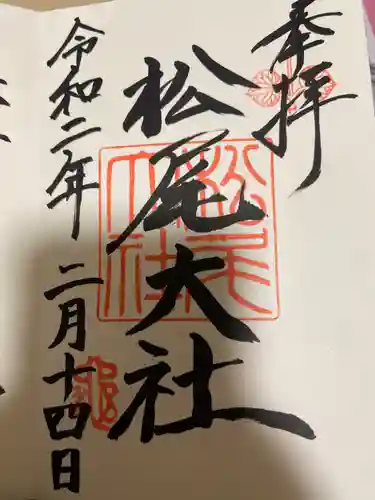 奉拝
松尾大社
松尾大社
令和二年二月十四日